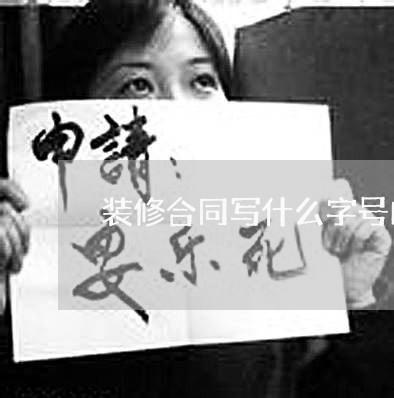 申請：
装修合同写什么字号
乐死